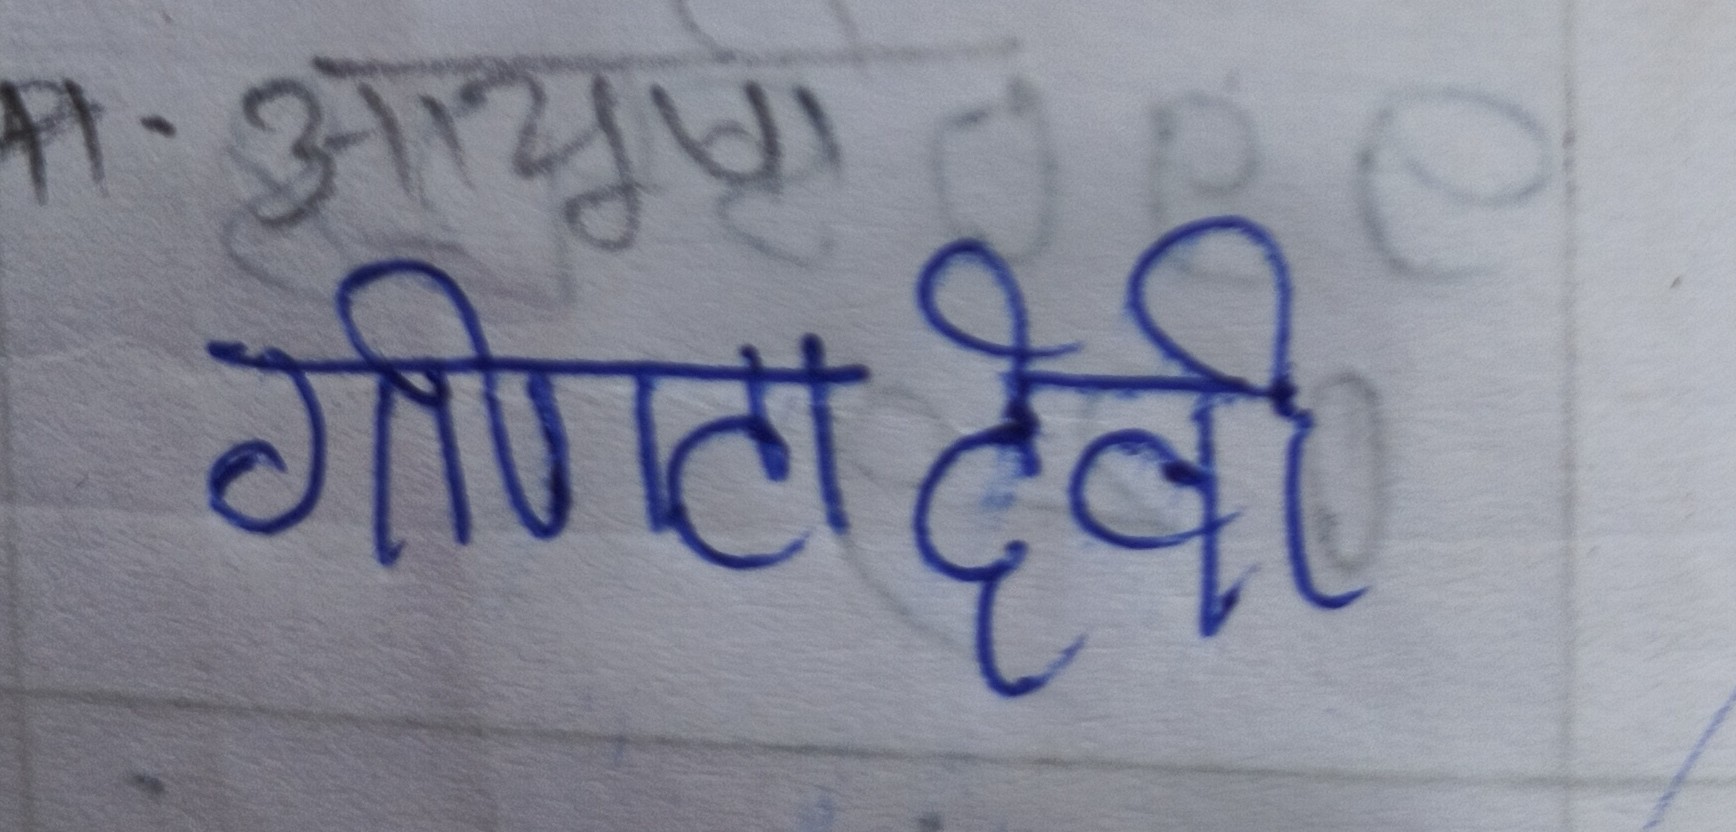 मा. आयुष
गीणता देवी